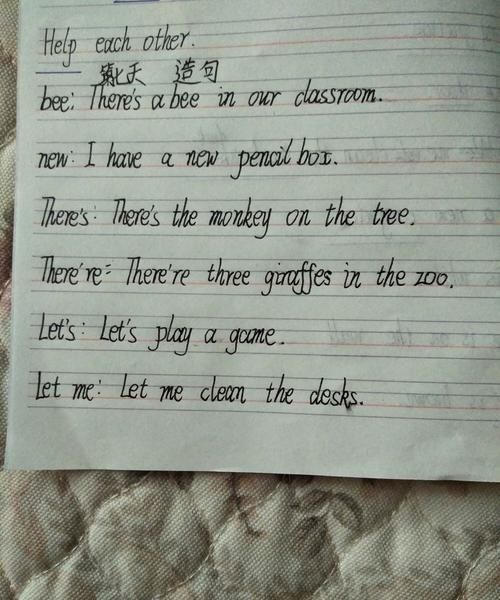 Help each other.
第七天 造句
bee: There's a bee in our classroom.
new: I have a new pencil box.
There's: There's the monkey on the tree.
There're: There're three giraffes in the zoo.
Let's: Let's play a game.
Let me: Let me clean the desks.